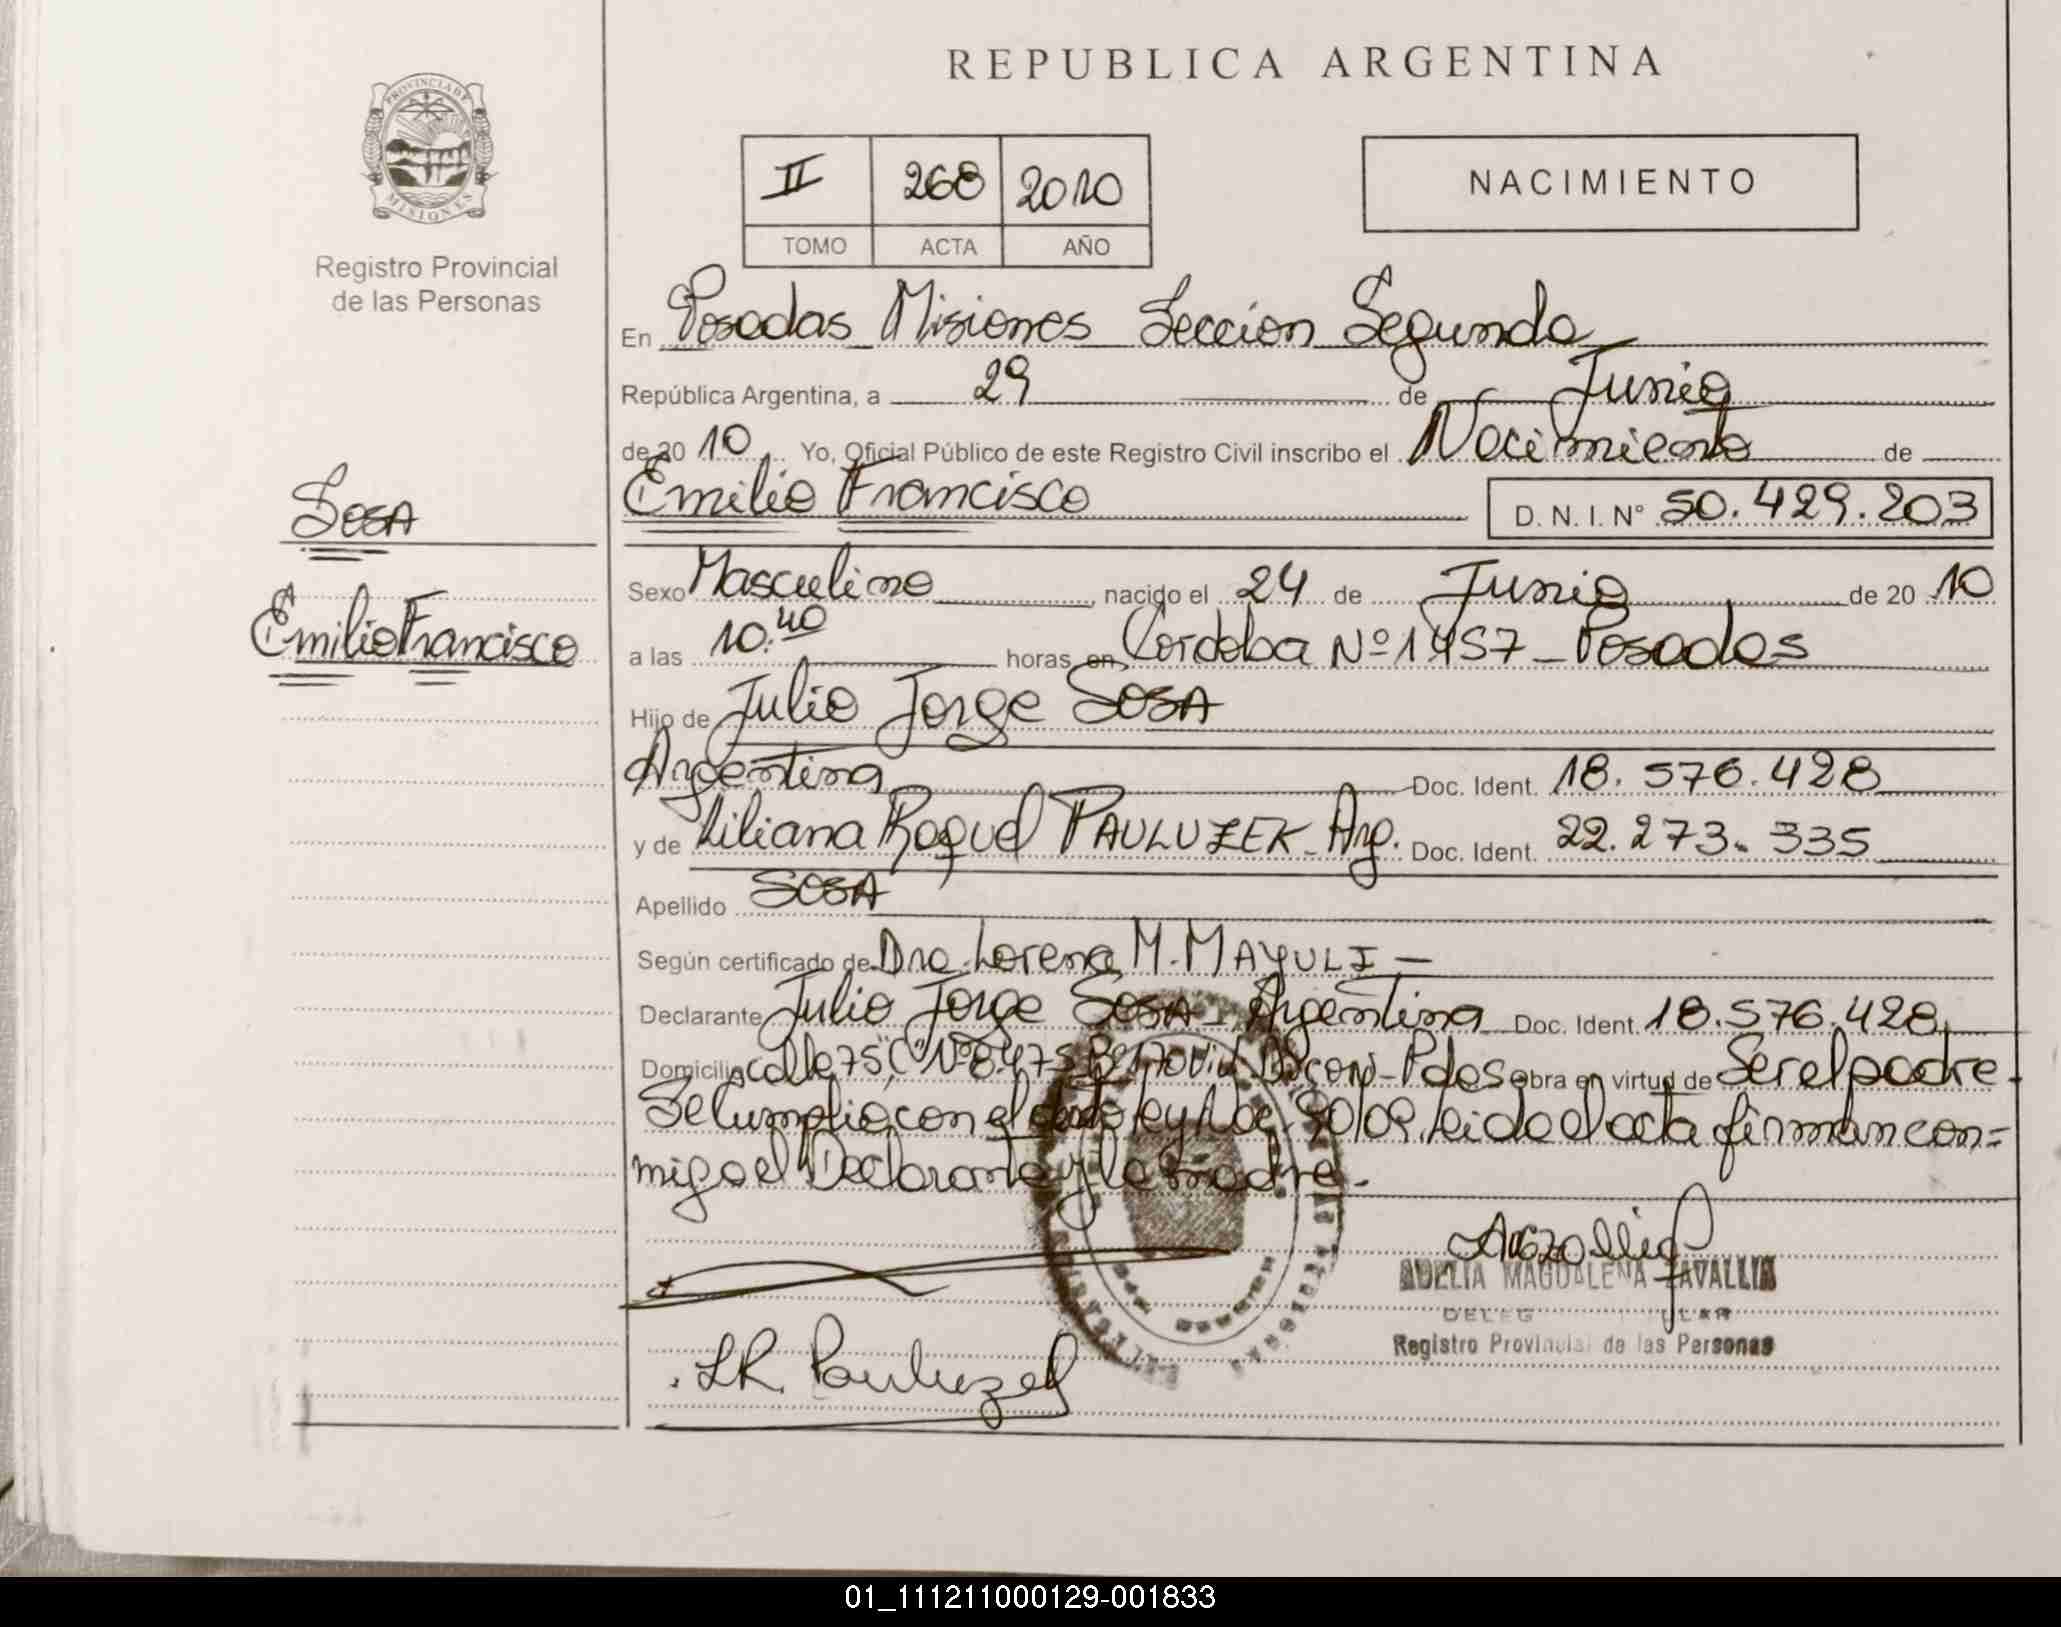 REPUBLICA ARGENTINA
PROVINCIA DE
MISIONES
Registro Provincial
de las Personas
II 268 2010
TOMO ACTA AÑO
NACIMIENTO
En Posadas Misiones Seccion Segunda
República Argentina, a 29 de Junio
de 20 10 Yo, Oficial Público de este Registro Civil inscribo el Nacimiento de
Emilio Francisco D. N. I. N° 50.429.203
SOSA
Emilio Francisco
Sexo Masculino , nacido el 24 de Junio de 20 10
a las 10.40 horas, en Cordoba Nº 1457 - Posadas
Hijo de Julio Jorge SOSA
Argentina Doc. Ident. 18.576.428
y de Liliana Raquel PAULUZEK - Arg. Doc. Ident. 22.273.335
Apellido SOSA
Según certificado de Dra. Lorena M. MAYULI -
Declarante Julio Jorge SOSA - Argentina Doc. Ident. 18.576.428
Domicilio calle 75 "C" Nº 8475 Bº 170 Viv. - Pdas obra en virtud de Ser el padre -
Se cumplio con el Ley Nac. leido el acta firman con=
migo el Declarante y la madre.-
ADELIA MAGDALENA ZAVALLIA
Registro Provincial de las Personas
L.R. Pauluzek
01_111211000129-001833